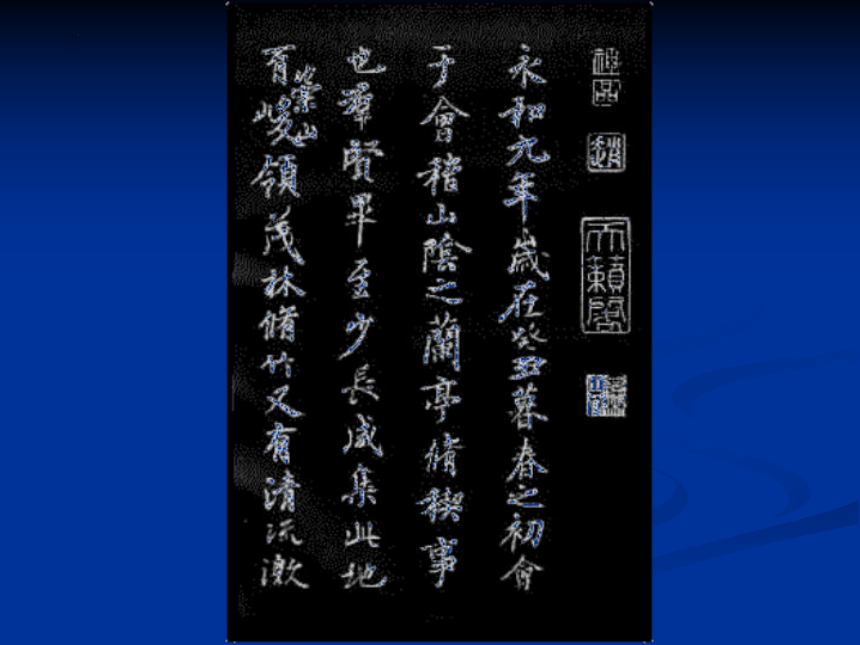 神品
天籟閣
永和九年歲在癸丑暮春之初會
于會稽山陰之蘭亭脩稧事
也羣賢畢至少長咸集此地
有崇山峻領茂林脩竹又有清流激